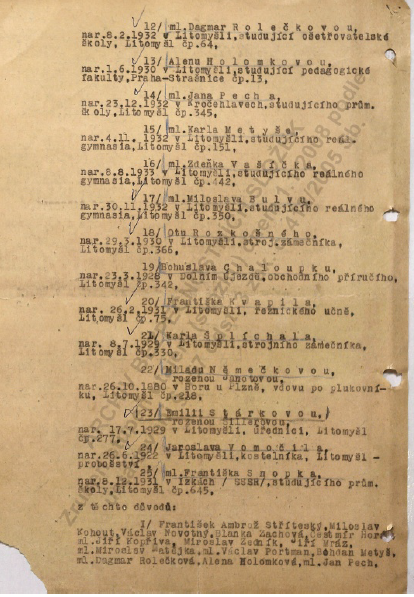 12/ ml.Dagmar Rolečkovou,
nar.8.2.1932 v Litomyšli,studující ošetřovatelské
školy, Litomyšl čp.64,
13/ Alenu Holomkovou,
nar.1.6.1930 v Litomyšli,studující pedagogické
fakulty,Praha-Strašnice čp.13,
14/ ml.Jana Pecha,
nar.23.12.1932 v Kročehlavech,studujícího prům.
školy,Litomyšl čp.345,
15/ ml.Karla Metyše,
nar.4.11.1932 v Litomyšli,studujícího reál.
gymnasia,Litomyšl čp.151,
16/ ml.Zdeňka Vašíčka,
nar.8.8.1933 v Litomyšli,studujícího reálného
gymnasia,Litomyšl čp.442,
17/ ml.Miloslava Bulvu,
nar.30.11.1932 v Litomyšli,studujícího reálného
gymnasia,Litomyšl čp.350,
18/ Otu Rozkošného,
nar.29.3.1930 v Litomyšli, stroj.zámečníka,
Litomyšl čp.366,
19/ Bohuslava Chaloupku,
nar.23.3.1928 v Dolním Újezdě,obchodního příručího,
Litomyšl čp.342,
20/ Františka Kvapila,
nar.26.2.1931 v Litomyšli, řeznického učně,
Litomyšl čp.75,
21/ Karla Šplíchala,
nar.8.7.1929 v Litomyšli,strojního zámečníka,
Litomyšl čp.330,
22/ Miladu Němečkovou,
rozenou Janotovou,
nar.26.10.1880 v Boru u Plzně, vdovu po plukovní-
ku, Litomyšl čp.218,
23/ Emilii Stárkovou,
rozenou
nar.17.7.1929 v Litomyšli, úřednici, Litomyšl
čp.277,
24/ Jaroslava Vomočila,
nar.26.6.1922 v Litomyšli,kostelníka, Litomyšl -
proboštství
25/ ml.Františka Snopka,
nar.8.12.1931 v /SSSR/,studujícího prům.
školy,Litomyšl čp.645,
z těchto důvodů:
I/ František Ambrož Stříteský, Miloslav
Kohout,Václav Novotný,Blanka Zachová,Čestmír
ml.Jiří Kopřiva, Miroslav Zedník, Jiří Mráz,
ml.Miroslav Patejka,ml.Václav Portman,Bohdan Metyš,
ml.Dagmar Rolečková,Alena Holomková,ml.Jan Pech,